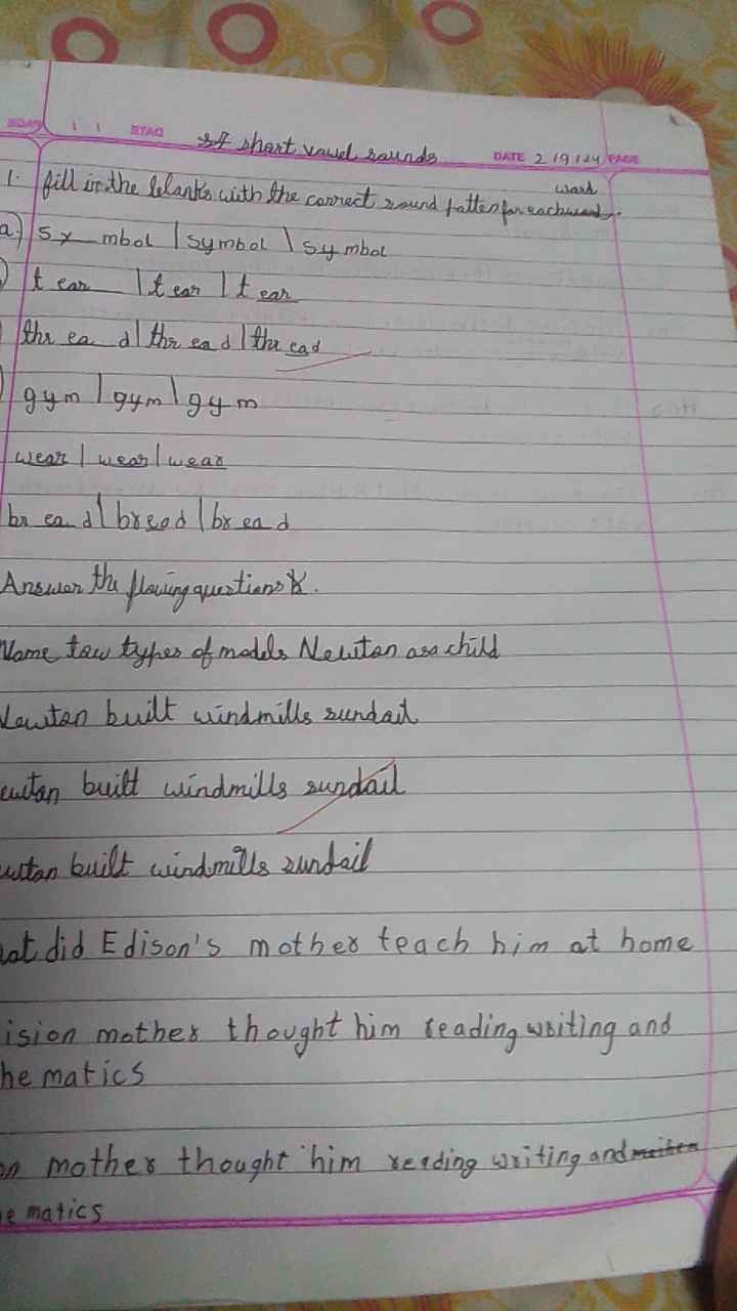 DATE 2 19 124 PAGE
short vowel sounds
1. fill in the blanks with the correct sound patten for each word.
a) sy mbol | symbol | sy mbol
t ear | t ear | t ear
thr ea d | thr ea d | thr ead
gym | gym | gym
wear | wear | wear
br ea d | bread | br ea d
Answer the flowing questions
Name taw types of models Newton as a child
Newton built windmills sundail
built windmills sundail
built windmills sundail
did Edison's mother teach him at home
mother thought him reading writing and
matics
mother thought him reading writing and
matics